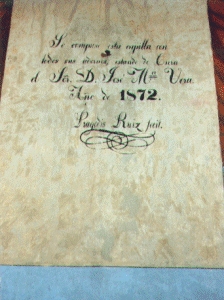 Se compuso esta capilla con
todos sus adornos, estando de Cura
el Sor. D. José Mª Vera.
Año de 1872.
Ruiz fecit.